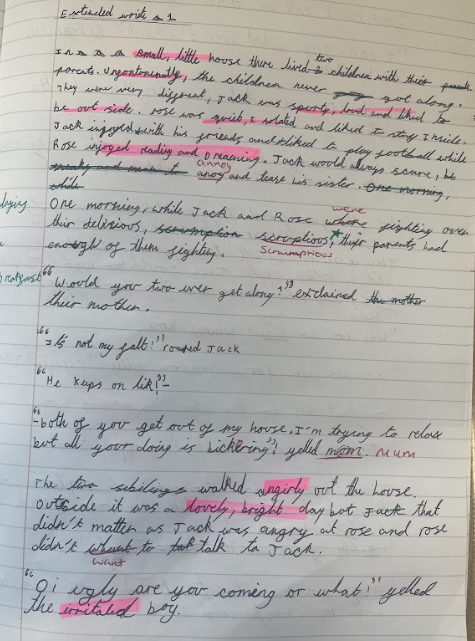 Extended write 1
In a small, little house there lived two children with their
parents. Ungontemently, the children never got along.
They were very different, Jack was sporty, loud and liked to
be out side. rose was quiet, isolated and liked to stay inside.
Jack injoyed with his friends and liked to play football while
Rose injoyed reading and Dreaming. Jack would always scare, be
annoy
sneaky and mean to anoy and tease his sister. One morning,
while
One morning, while Jack and Rose were fighting over
their delisious, scrumption scruptious, their parents had
enough of them fighting.
Scrumptious
"Would you two ever get along?" exclaimed the mother
their mother.
"Its not my falt!" roared Jack
"He keeps on lik!"-
"-both of you get out of my house. I'm trying to relax
but all your doing is bickering"! yelled mom. mum
The two sibilings walked angirly out the house.
Outside it was a lovely, bright day bot Jack that
didn't matter as Jack was angry at rose and rose
didn't whant to talk to Jack.
want
"Oi ugly are you coming or what!" yelled
the irritated boy.